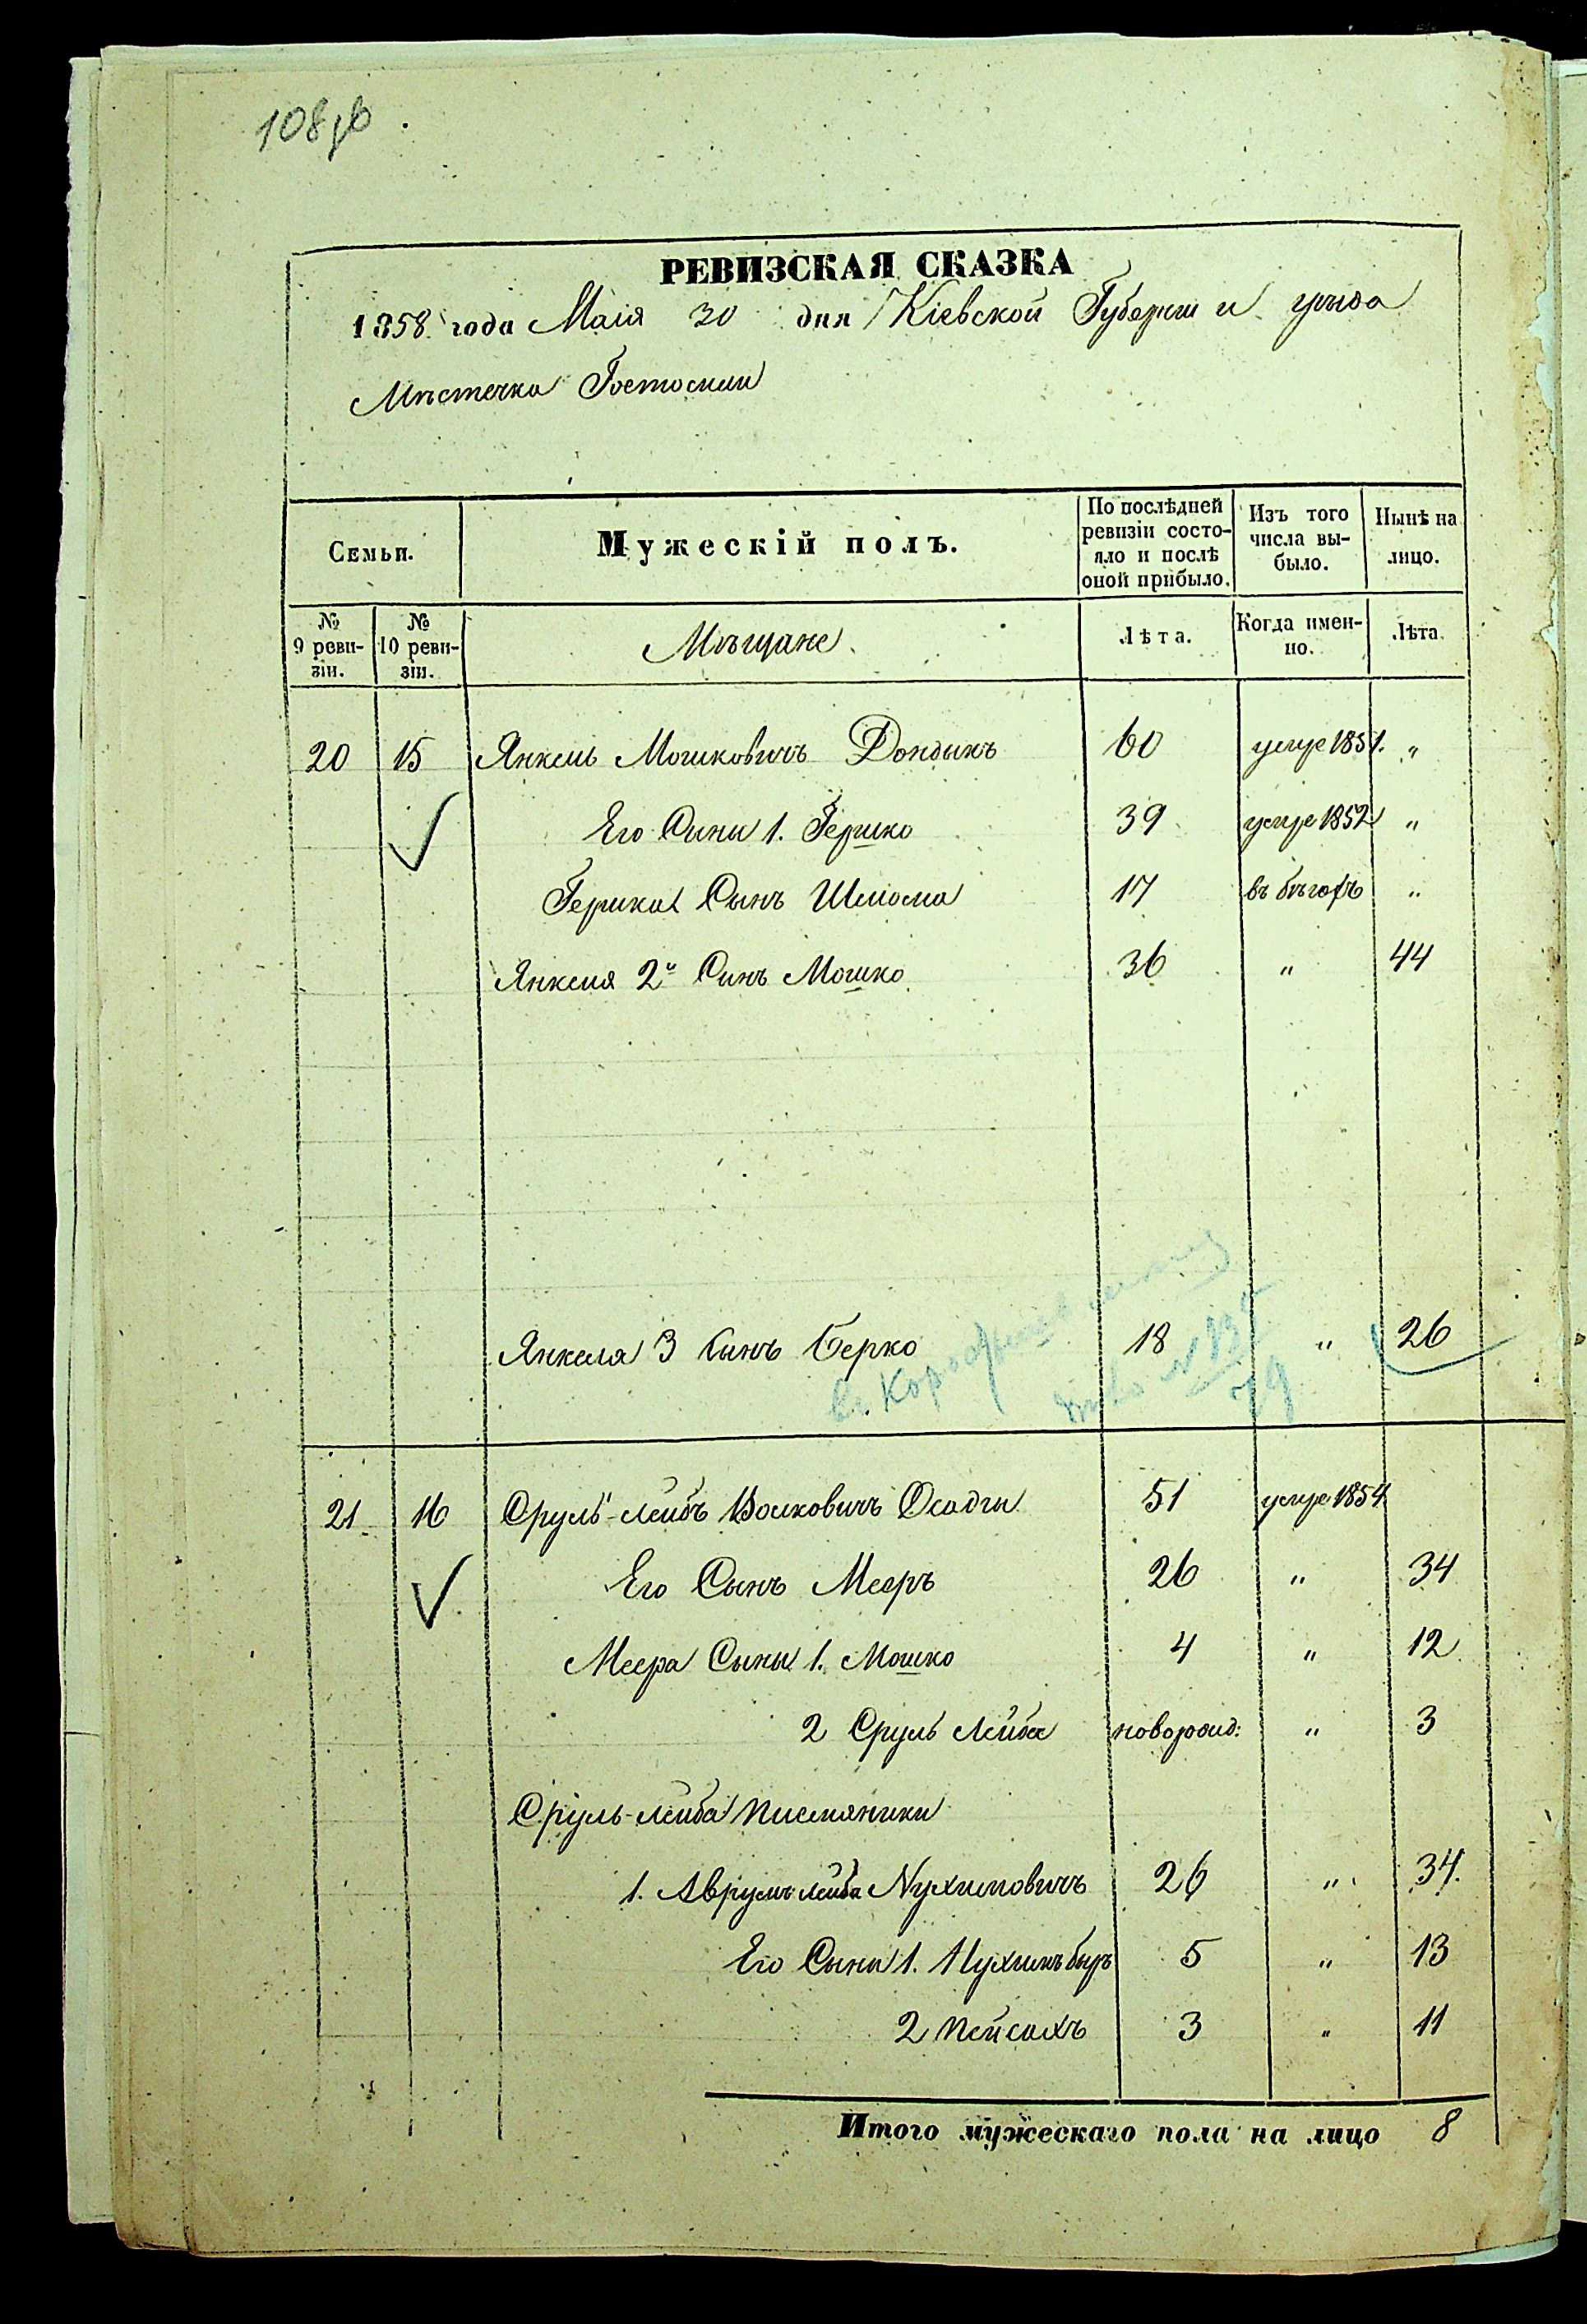 108 об.
РЕВИЗСКАЯ СКАЗКА
1858 года Маія 30 дня Кіевской Губерніи и уѣзда
Мѣстечка Гостомли
Семьи.
Мужескій полъ.
По послѣдней ревизіи состояло и послѣ оной прибыло.
Изъ того числа выбыло.
Нынѣ на лицо.
№ 9 ревизіи.
№ 10 ревизіи.
Мѣщане
Лѣта.
Когда именно.
Лѣта.
20 15 Янкель Мошковичъ Дондыкъ 60 умре 1851. "
Его Сыны 1. Гершко 39 умре 1852 "
Гершка Сынъ Шлома 17 въ бѣгахъ "
Янкеля 2й Сынъ Мошко 36 " 44
Янкеля 3 Сынъ Берко 18 " 26
21 16 Сруль-Лейбъ Волковичъ Осадчи 51 умре 1854
Его Сынъ Мееръ 26 " 34
Меера Сыны 1. Мошко 4 " 12
2 Сруль Лейба новорожд: " 3
Сруль-Лейба племяники
1. Аврумъ Лейба Нухимовичъ 26 " 34.
Его Сыны 1. Нухимъ 5 " 13
2 Пейсахъ 3 " 11
Итого мужескаго пола на лицо 8